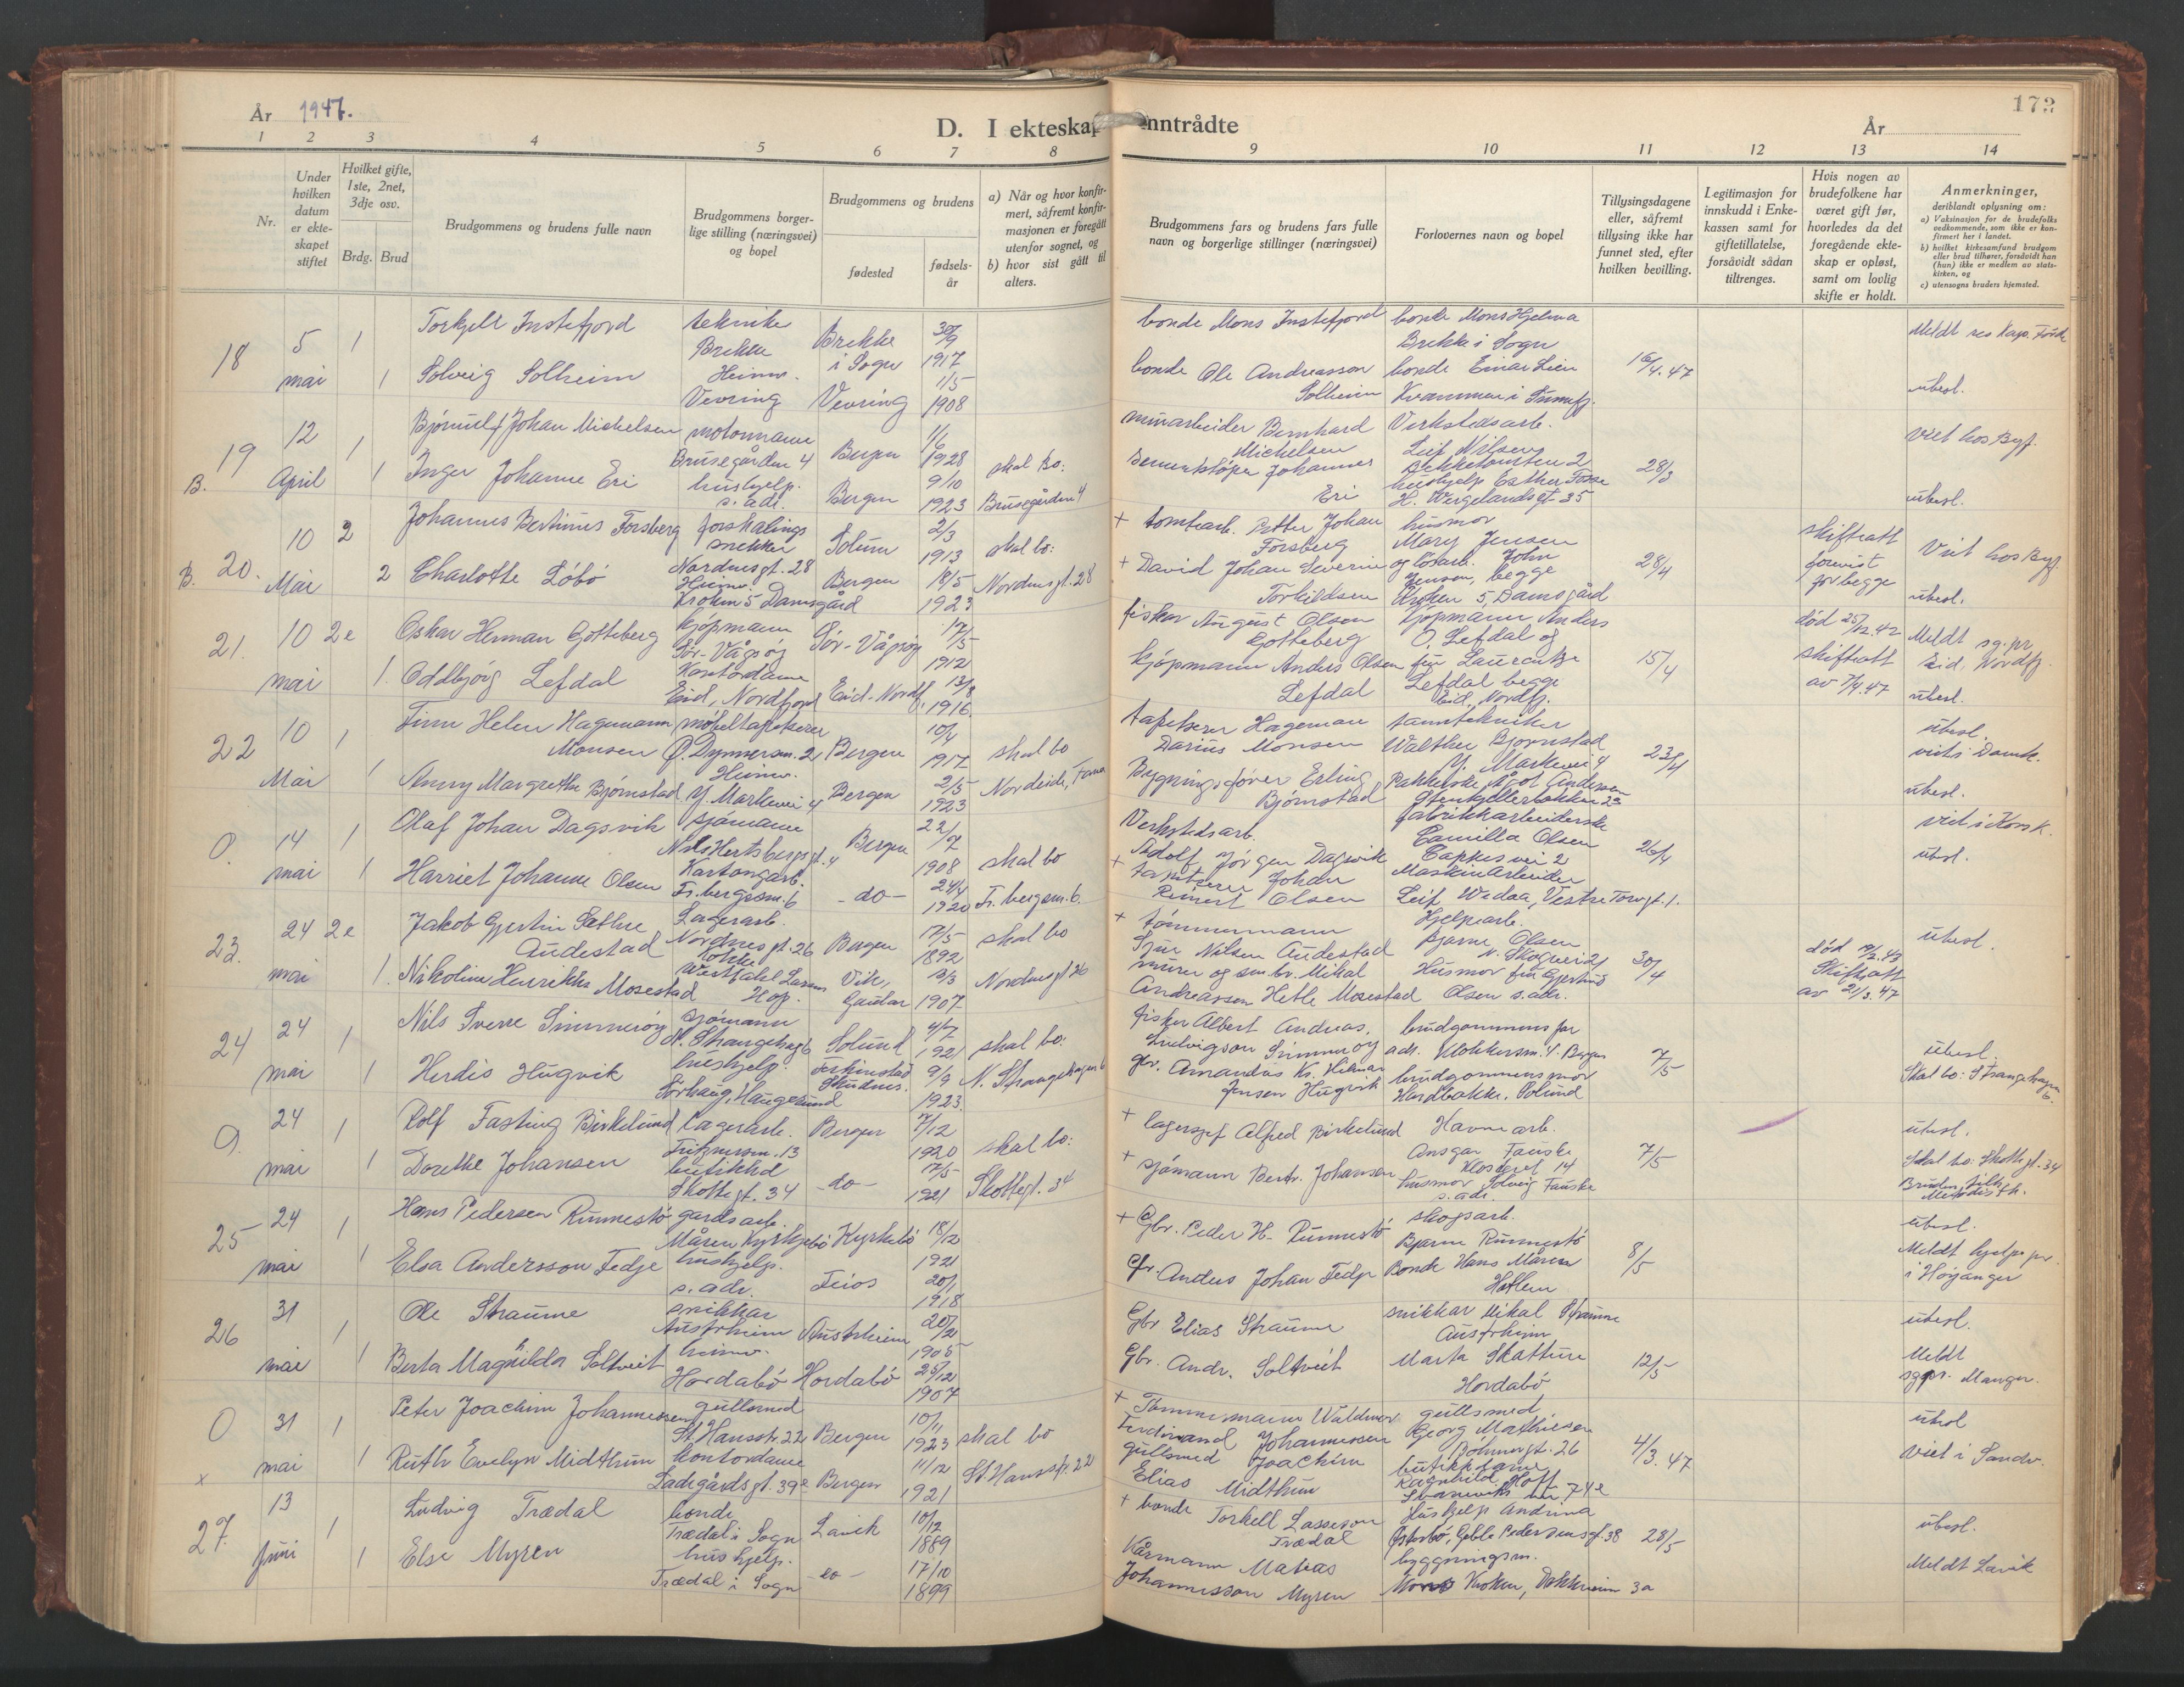 År 1947.
D. I ekteskap inntrådte
173
År
1 2 3 4 5 6 7 8 9 10 11 12 13 14
Nr.
Under hvilken datum er ekteskapet stiftet
Hvilket gifte, 1ste, 2net, 3dje osv.
Brdg. Brud
Brudgommens og brudens fulle navn
Brudgommens borgerlige stilling (næringsvei) og bopel
Brudgommens og brudens
fødested
fødselsår
a) Når og hvor konfirmert, såfremt konfirmasjonen er foregått utenfor sognet, og
b) hvor sist gått til alters.
Brudgommens fars og brudens fars fulle navn og borgerlige stillinger (næringsvei)
Forlovernes navn og bopel
Tillysingsdagene eller, såfremt tillysing ikke har funnet sted, efter hvilken bevilling.
Legitimasjon for innskudd i Enkekassen samt for giftetillatelse, forsåvidt sådan tiltrenges.
Hvis nogen av brudefolkene har været gift før, hvorledes da det foregående ekteskap er opløst, samt om lovlig skifte er holdt.
Anmerkninger, deriblandt oplysning om:
a) Vaksinasjon for de brudefolks vedkommende, som ikke er konfirmert her i landet.
b) hvilket kirkesamfund brudgom eller brud tilhører, forsåvidt han (hun) ikke er medlem av statskirken, og
c) utensogns bruders hjemsted.
18
5 mai
1
Torkjell Instefjord
tekniker
Brekke
Brekke i Sogn
30/9 1917
bonde Mons Instefjord
bonde Mons Hjelma
Brekke i Sogn
1
Solveig Solheim
Heimv.
Vevring
Vevring
1/5 1908
bonde Ole Andreasson Solheim
bonde Einar Lien
16/4.47
ubesl.
19
B.
12 April
1
Johan Michelsen
motormann
Brusegården 4
Bergen
1/6 1928
skal bo:
Brusegården 4
murarbeider Bernhard Michelsen
Verkstedsarb.
Leif Nilsen
28/3
Viet hos Byf.
1
Inger Johanne Eri
hushjelp.
s. adr.
Bergen
9/10 1923
Johannes Eri
hushjelp Esther Fosse
H. Wergelandsgt. 35
ubesl.
B. 20.
10 Mai
2
Johannes Bertinus Forsberg
forskalings snekker
Nordnesgt. 28
Solum
2/3 1913
skal bo:
Nordnesgt. 28
+ tomtearb. Petter Johan Forsberg
husmor Mary Jensen
og løsarb. John Jensen, begge
Kroken 5, Damsgård
28/4
skifteatt forevist for begge
Viet hos Byf.
2
Charlotte Løbø
Heimv.
Kroken 5 Damsgård
Bergen
18/5 1923
+ David Johan Severin Torkildsen
ubesl.
21.
10 mai
2e
Oskar Herman Gotteberg
kjøpmann
Sør-Vågsøy
Sør-Vågsøy
17/5 1912
fisker August Olsen Gotteberg
kjøpmann Anders O. Lefdal og
fru Laurentze Lefdal begge
Eid, Nordfj.
15/4
død 25/12.42
skifteatt av 7/4.47
Meldt sg. pr. Eid, Nordfj.
1.
Oddbjørg Lefdal
Kontordame
Eid, Nordfjord
Eid. Nordf.
13/8 1916.
kjøpmann Anders Olsen Lefdal
ubesl.
22
10 Mai
1
Finn Helen Hagemann Monsen
møbeltapetserer
Bergen
10/4 1917
skal bo
Nordeide, Fana
tapetserer Hageman Darius Monsen
tanntekniker Walther Bjørnstad
Y. Markevei 4
23/4
ubesl.
viet i Domk.
1
Anny Margrethe Bjørnstad
Heimv.
Y. Markevei 4
Bergen
2/5 1923
Bygningsfører Erling Bjørnstad
Pakkerske Ågot Andersen
ubesl.
0.
14 mai
1
Olaf Johan Dagsvik
sjømann
Nils Hertsbergsgt. 4
Bergen
22/7 1908
skal bo
Fr. bergsm. 6.
Verkstedsarb. Adolf Jørgen Dagsvik
fabrikkarbeiderske Camilla Olsen
Cappesvei 2
26/4
viet i Korsk.
1
Harriet Johanne Olsen
Kartongarb.
Fr. bergsm. 6
-do-
24/4 1920
+ tapetserer Johan Reinert Olsen
Maskinarbeider Leif Wedaa, Vestre Torvgt. 1.
ubesl.
23.
24 mai
2e
Jakob Gjertin Sæthre Audestad
Lagerarb.
Nordnesgt. 26
Bergen
17/5 1892
skal bo
Nordnesgt 26
+ tømmermann Sjur Nilsen Audestad
Hjelpearb. Bjarne Olsen
N. Skogvei 21
30/4
død 19/2.43
Skifteatt av 21/3.47
ubesl.
1.
Nikoline Henrikke Mosestad
kokke
Westfahl Larsen
Hop.
Vik, Gaular
13/3 1907
murer og småbr. Mikal Andreassen Hetle Mosestad
Husmor fru Gjertrud Olsen s. adr.
24
24 mai
1
Nils Sverre Simmerøy
sjømann
N. Strangehag 6
Solund
4/7 1921
skal bo:
N. Strangehagen 6
fisker Albert Andreas Ludvigson Simmerøy
brudgommens far
adr. Klokkersm. 4. Bergen
7/5
ubesl.
Skal bo: Strangehagen 6.
1
Herdis Hugvik
hushjelp.
Sørhaug, Haugesund
Skudnes.
9/9 1923.
gbr. Amandus Kr. Hilmar Jensen Hugvik
brudgommens mor
Hardbakke, Solund
9.
24 mai
1
Rolf Fasting Birkelund
Lagerarb.
Fritznersm. 13
Bergen
7/12 1920
skal bo:
Skottegt. 34
+ lagersjef Alfred Birkelund
Havnearb.
Ansgar Fauske
Klosteret 14
7/5
ubesl.
Skal bo: Skottegt. 34
1
Dorethe Johansen
butikkd
Skottegt. 34
-do-
17/5 1921
+ sjømann Bertr. Johansen
husmor Solveig Fauske s. adr.
Bruden tilh. Metodistk.
25
24 mai
1
Hans Pedersen Runnestø
gardsarb.
Måren Kyrkjebø
Kyrkebø
18/2 1921
+ Gbr. Peder H. Runnestø
skogsarb. Bjarne Runnestø
8/5
ubesl.
1
Elsa Andersson Fedje
hushjelp.
s. adr.
Feios
20/1 1918
Gbr. Andus Johan Fedje
Bonde Hans Måren
Meldt hjelpepr. i Høyanger
26
31 mai
1
Ole Straume
snikkar
Austrheim
Austrheim
20/2 1905
Gbr Elias Straume
snikkar Mikal Straume
Austrheim
12/5
ubesl.
1
Berta Magnhilda Soltveit
heimv.
Hordabø
Hordabø
25/12 1907
Gbr. Andr. Soltveit
Marta Skatture
Hordabø
Meldt sgpr. Manger.
0
31 mai
1
Peter Joachim Johannessen
gullsmed
St Hansstr. 22
Bergen
10/11 1923
skal bo
St Hansstr. 22
+ Tømmermann Waldmar Ferdinand Johannessen
gullsmed Georg Mathiesen
Bøhmergt. 26
4/3.47
ubesl
viet i Sandv.
x
1
Ruth Evelyn Midthun
Kontordame
Ladegårdsgt. 39e
Bergen
11/12 1921
gullsmed Joachim Elias Midthun
butikkdame Ragnhild Hoff
27.
13 Juni
1
Ludvig Trædal
bonde
Trædal i Sogn
Lavik
10/12 1889
+ bonde Torkell Lasseson Trædal
Hushjelp Andrina Østerbø, Geble Pedersensgt. 38
28/5
ubesl.
1
Else Myren
hushjelp.
Trædal i Sogn
-do-
17/10 1899
Kårmann Matias Johannesson Myren
byggningsm.
Kroken, Dokkeveien 3a
Meldt Lavik